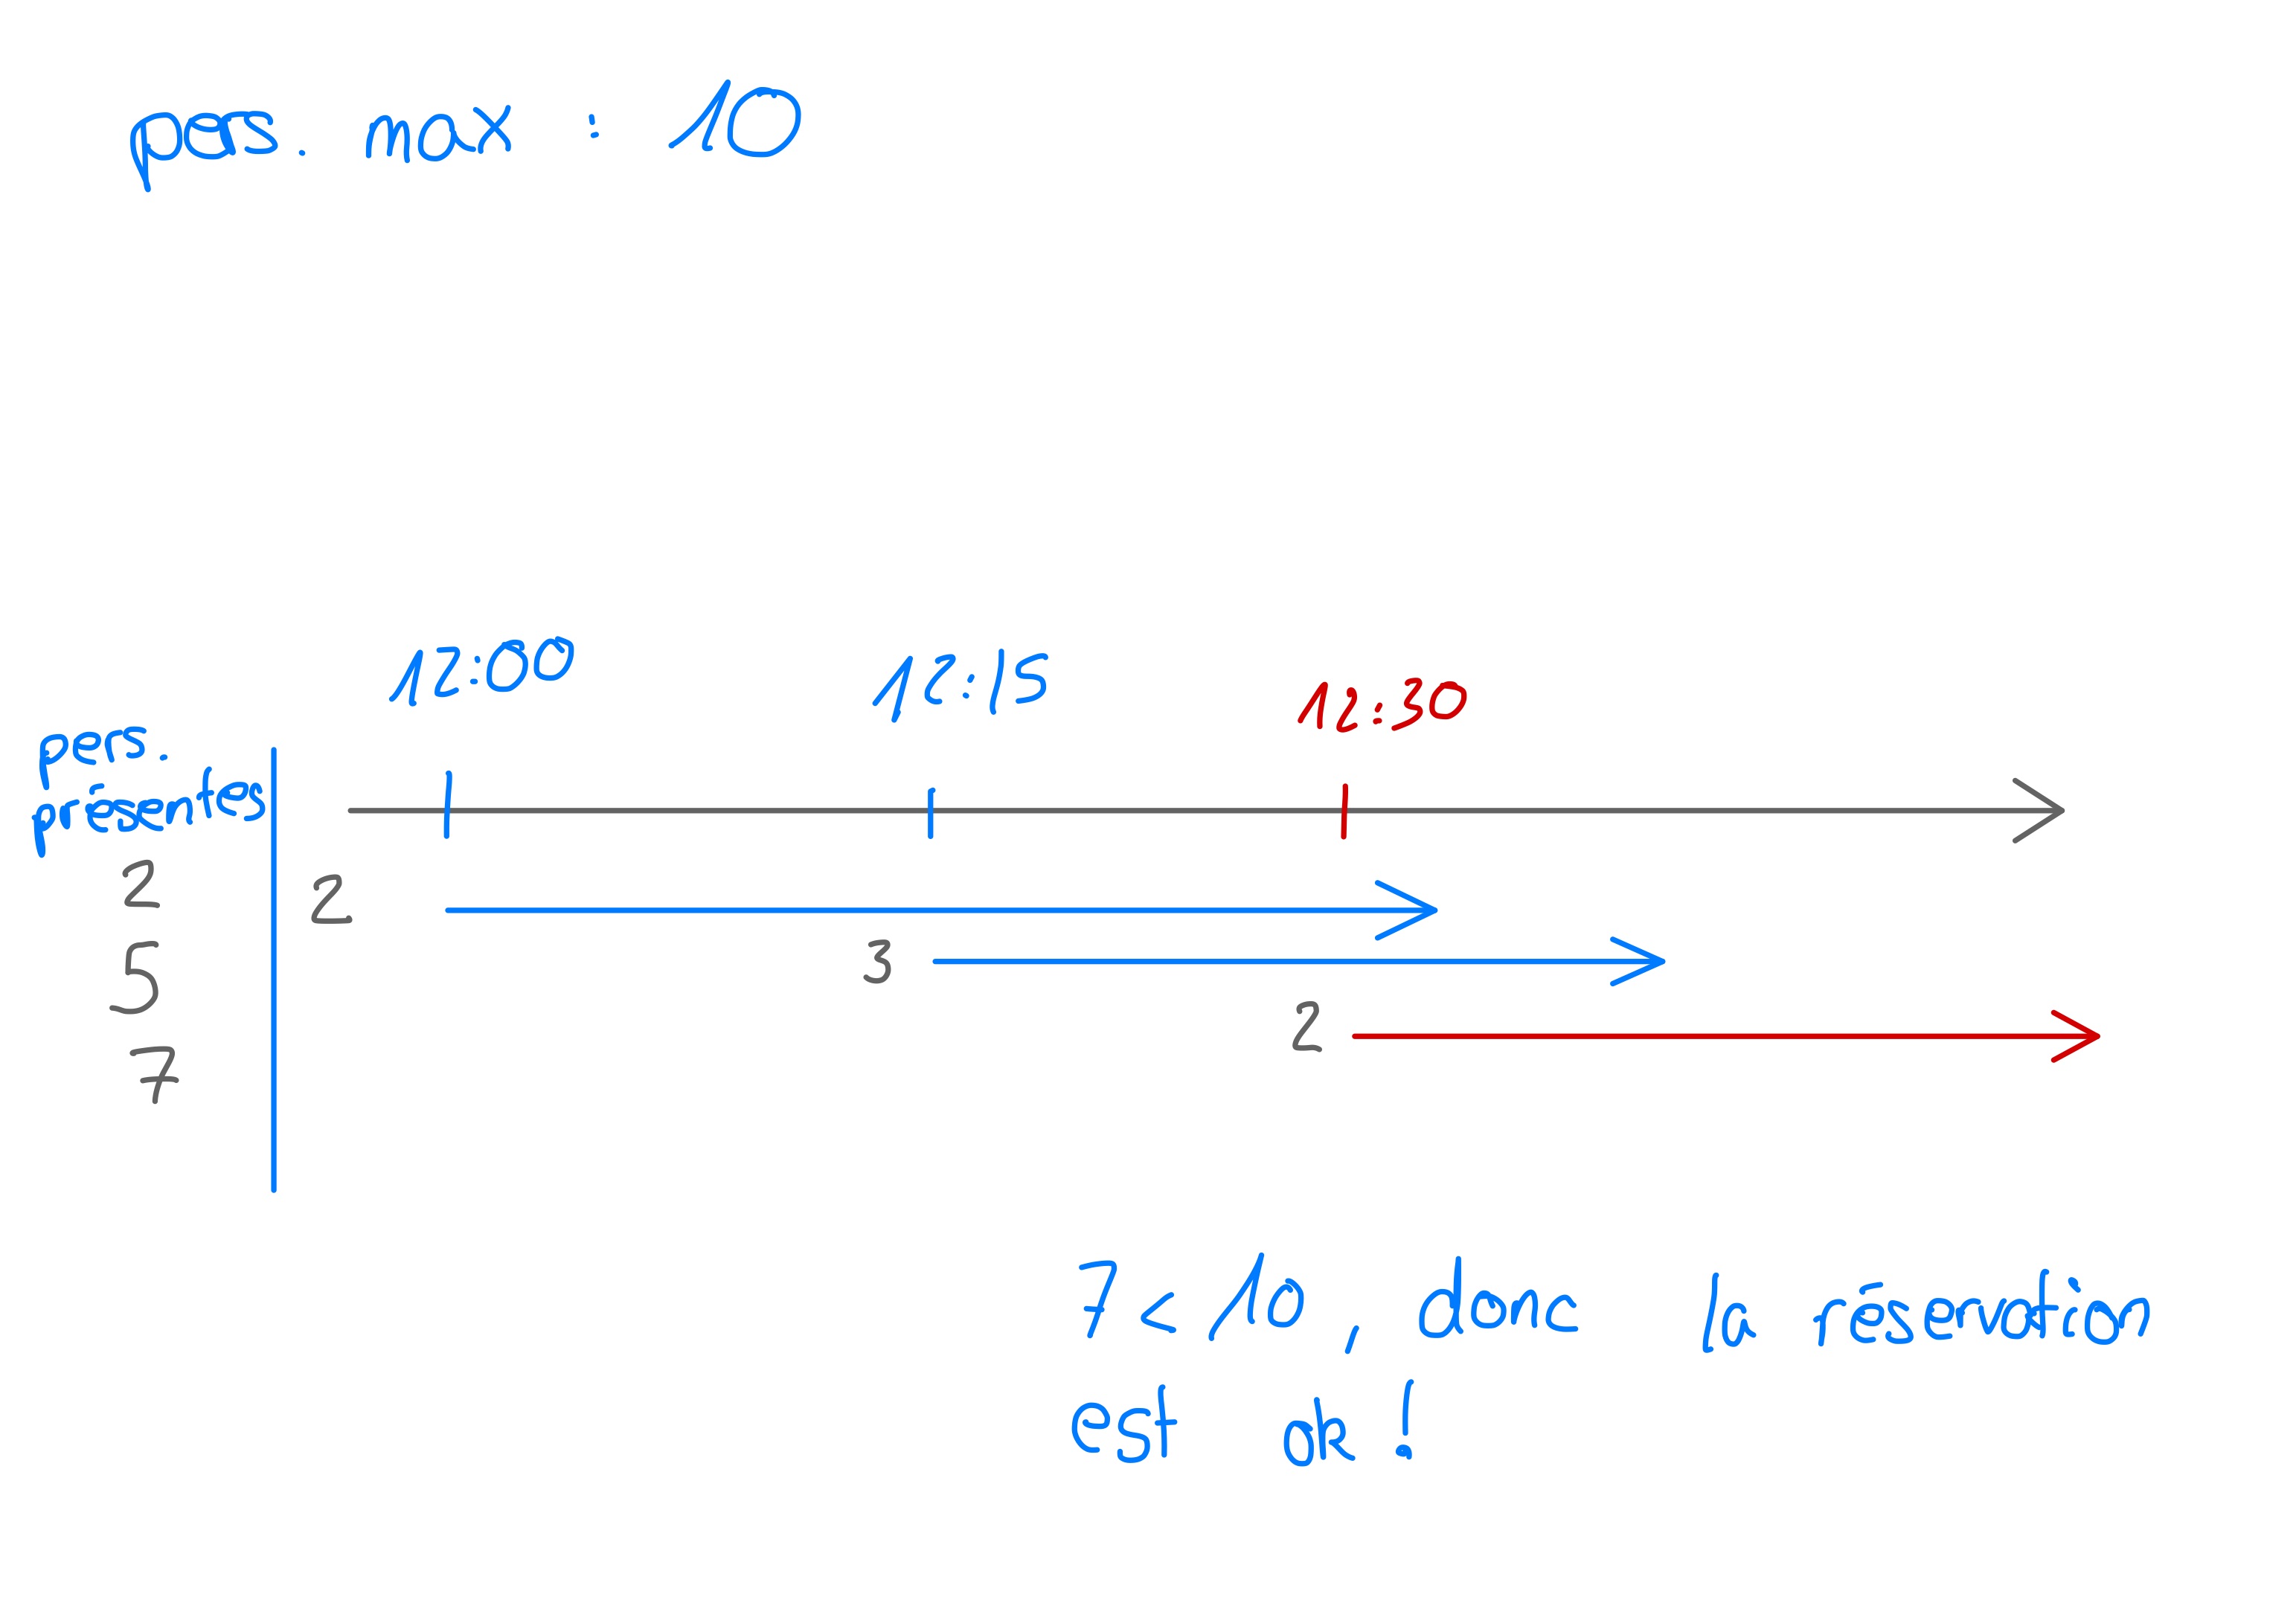 pers. max : 10
12:00 12:15 12:30
pers.
présentes
2 2
3
5
2
7
7 < 10, donc la réservation
est ok !